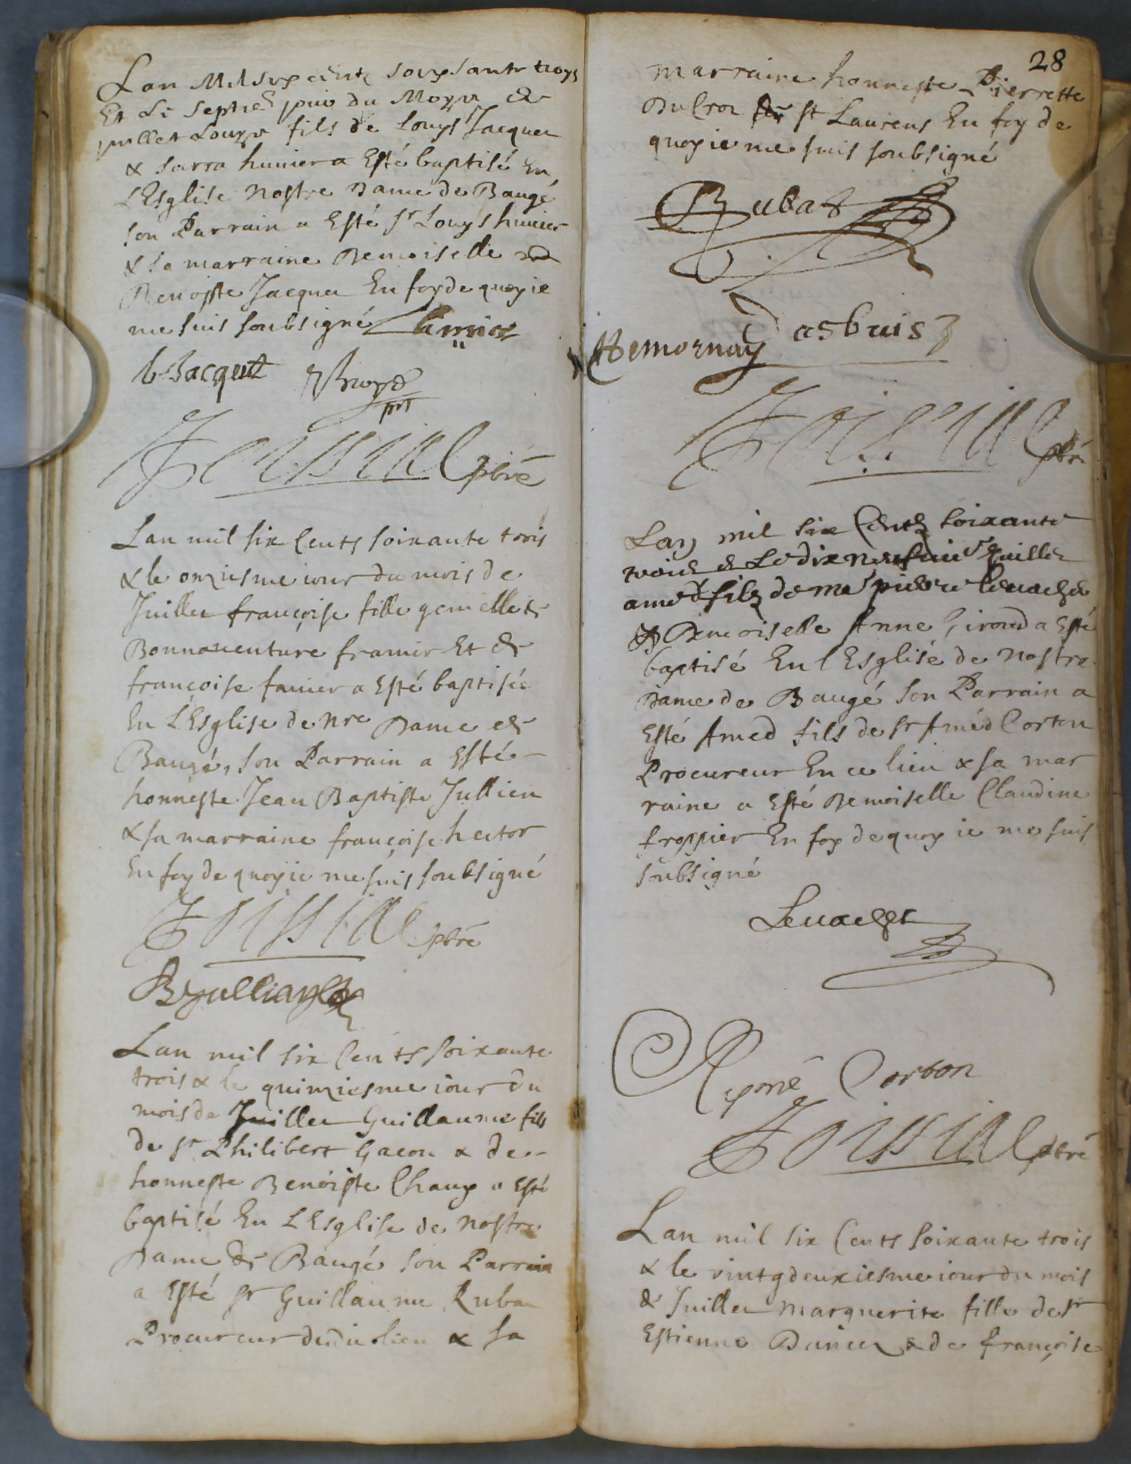 Lan Mil six cents soixsante troys
Et le septie jour du Moys de
juillet Louys fils de Louys Jacquet
& Sarra humier a Esté baptisé En
L'Esglise Nostre Dame de Baugé
son Parrain a Esté Sr Louys humier
& sa marraine Demoiselle
Benoiste Jacquet En foy de quoy ie
me suis soubsigné humier
L Jacquet
Foissiat pbre
Lan mil six Cents soixante trois
& le onziesme iour du mois de
Juillet françoise fille gemelle de
Bonnaventure framier Et de
françoise favier a Esté baptisée
En L'Esglise de nre Dame de
Baugé, son Parrain a Esté
honneste Jean Baptiste Jullien
& sa marraine françoise hector
En foy de quoy ie me suis soubsigné
Foissiat pbre
Lan mil six Cents soixante
trois & le quinziesme iour du
mois de Juillet Guillaume fils
de Sr Philibert Gacon & de
honneste Benoiste Chaux a Esté
baptisé En L'Esglise de nostre
Dame de Baugé son Parrain
a Esté Sr Guillaume Rubat
Procureur dudit lieu & sa
28
marraine honneste Pierrette
Ducroz St Laurens En foy de
quoy ie me suis soubsigné
Rubat
Dasbuis
Hemornay
Foissiat pbre
Lan mil six Cents soixante
trois & Le dix neufvie Juillet
amed filz de me pierre Levacher
& Demoiselle Anne Giroud a Esté
baptisé En l'Esglise de Nostre
Dame de Baugé son Parrain a
Esté Amed fils de Sr Améd Corton
Procureur En ce lieu & sa mar
raine a Esté Demoiselle Claudine
froppier En foy de quoy ie me suis
soubsigné
Levacher
Corton
Foissiat pbre
Lan mil six Cents soixante trois
& le vingtdeuxiesme iour du mois
de Juillet Marguerite fille de Sr
Estienne & de françoise